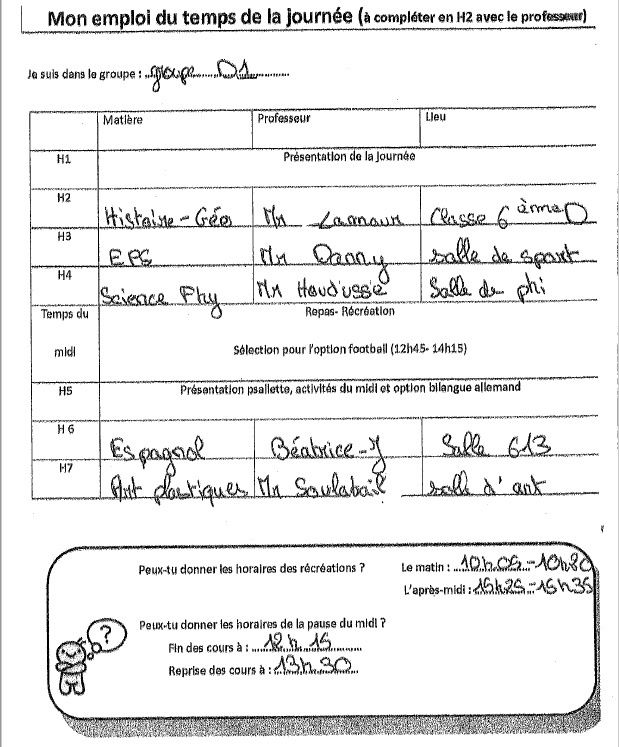 Mon emploi du temps de la journée (à compléter en H2 avec le professeur)
Je suis dans le groupe : groupe D1
Matière Professeur Lieu
H1 Présentation de la journée
H2 Histoire - Géo Mr Lamour Classe 6ème D
H3 EPS Mr Danny salle de sport
H4 Science Phy Mr Houdusse Salle de phi
Temps du Repas- Récréation
midi Sélection pour l'option football (12h45- 14h15)
H5 Présentation psallette, activités du midi et option bilangue allemand
H 6 Espagnol Béatrice-J Salle 613
H7 Art plastiques Mr Soulabail salle d'art
Peux-tu donner les horaires des récréations ? Le matin : 10h05-10h20
L'après-midi : 15h25-15h35
?
Peux-tu donner les horaires de la pause du midi ?
Fin des cours à : 12h15
Reprise des cours à : 13h30